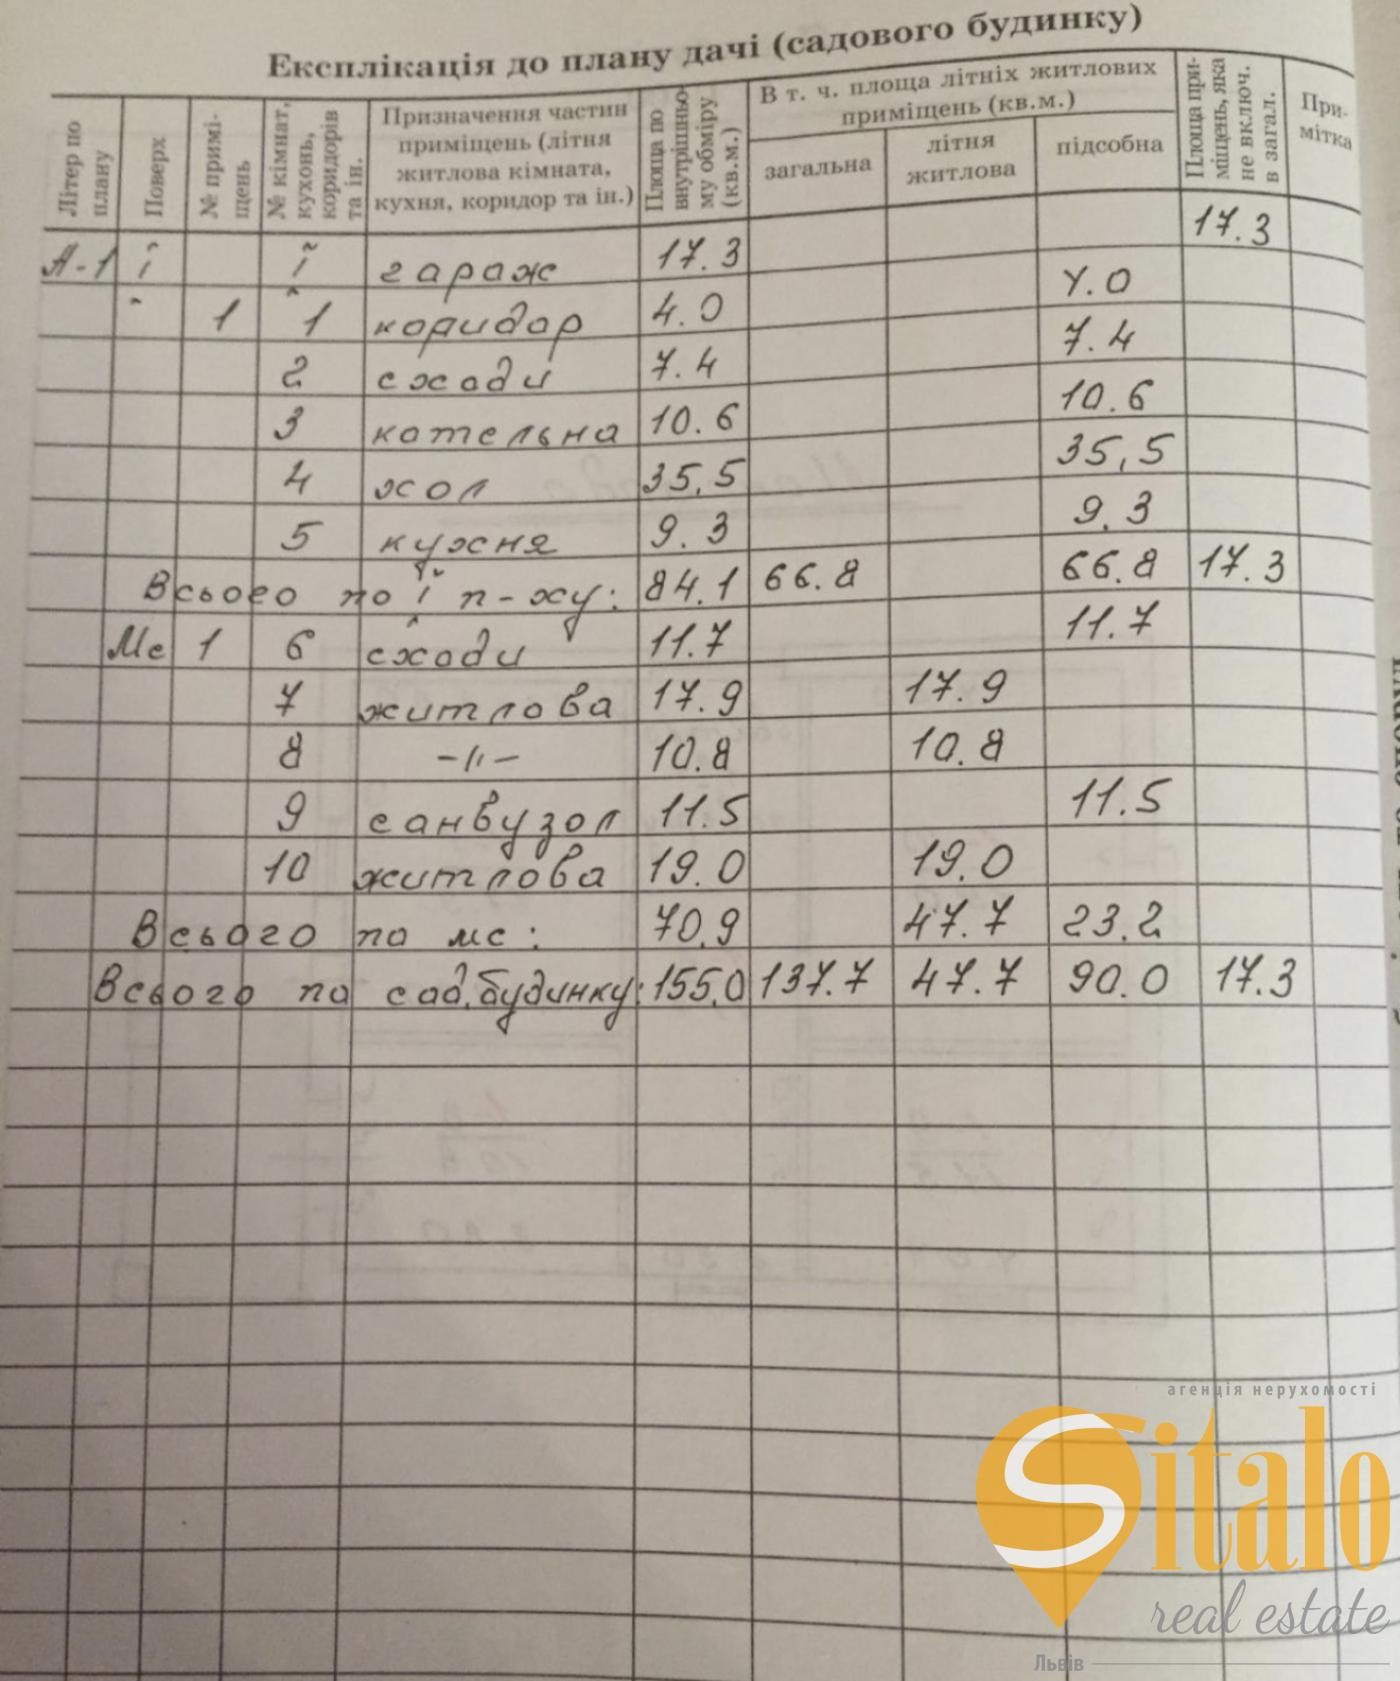 Експлікація до плану дачі (садового будинку)
Літер по плану
Поверх
№ приміщень
№ кімнат, кухонь, коридорів та ін.
Призначення частин приміщень (літня житлова кімната, кухня, коридор та ін.)
Площа по внутрішньому обміру (кв.м.)
В т. ч. площа літніх житлових приміщень (кв.м.)
загальна
літня житлова
підсобна
Площа приміщень, яка не включ. в загал.
Примітка
А-1 І І гараж 17.3 17.3
1 1 коридор 4.0 4.0
2 сходи 7.4 7.4
3 котельна 10.6 10.6
4 хол 35,5 35,5
5 кухня 9.3 9.3
Всього по І п-ху: 84.1 66.8 66.8 17.3
Мс 1 6 сходи 11.7 11.7
7 житлова 17.9 17.9
8 -//- 10.8 10.8
9 санвузол 11.5 11.5
10 житлова 19.0 19.0
Всього по мс: 70,9 47.7 23.2
Всього по сад.будинку: 155,0 137.7 47.7 90.0 17.3
агенція нерухомості
Sitalo
real estate
Львів